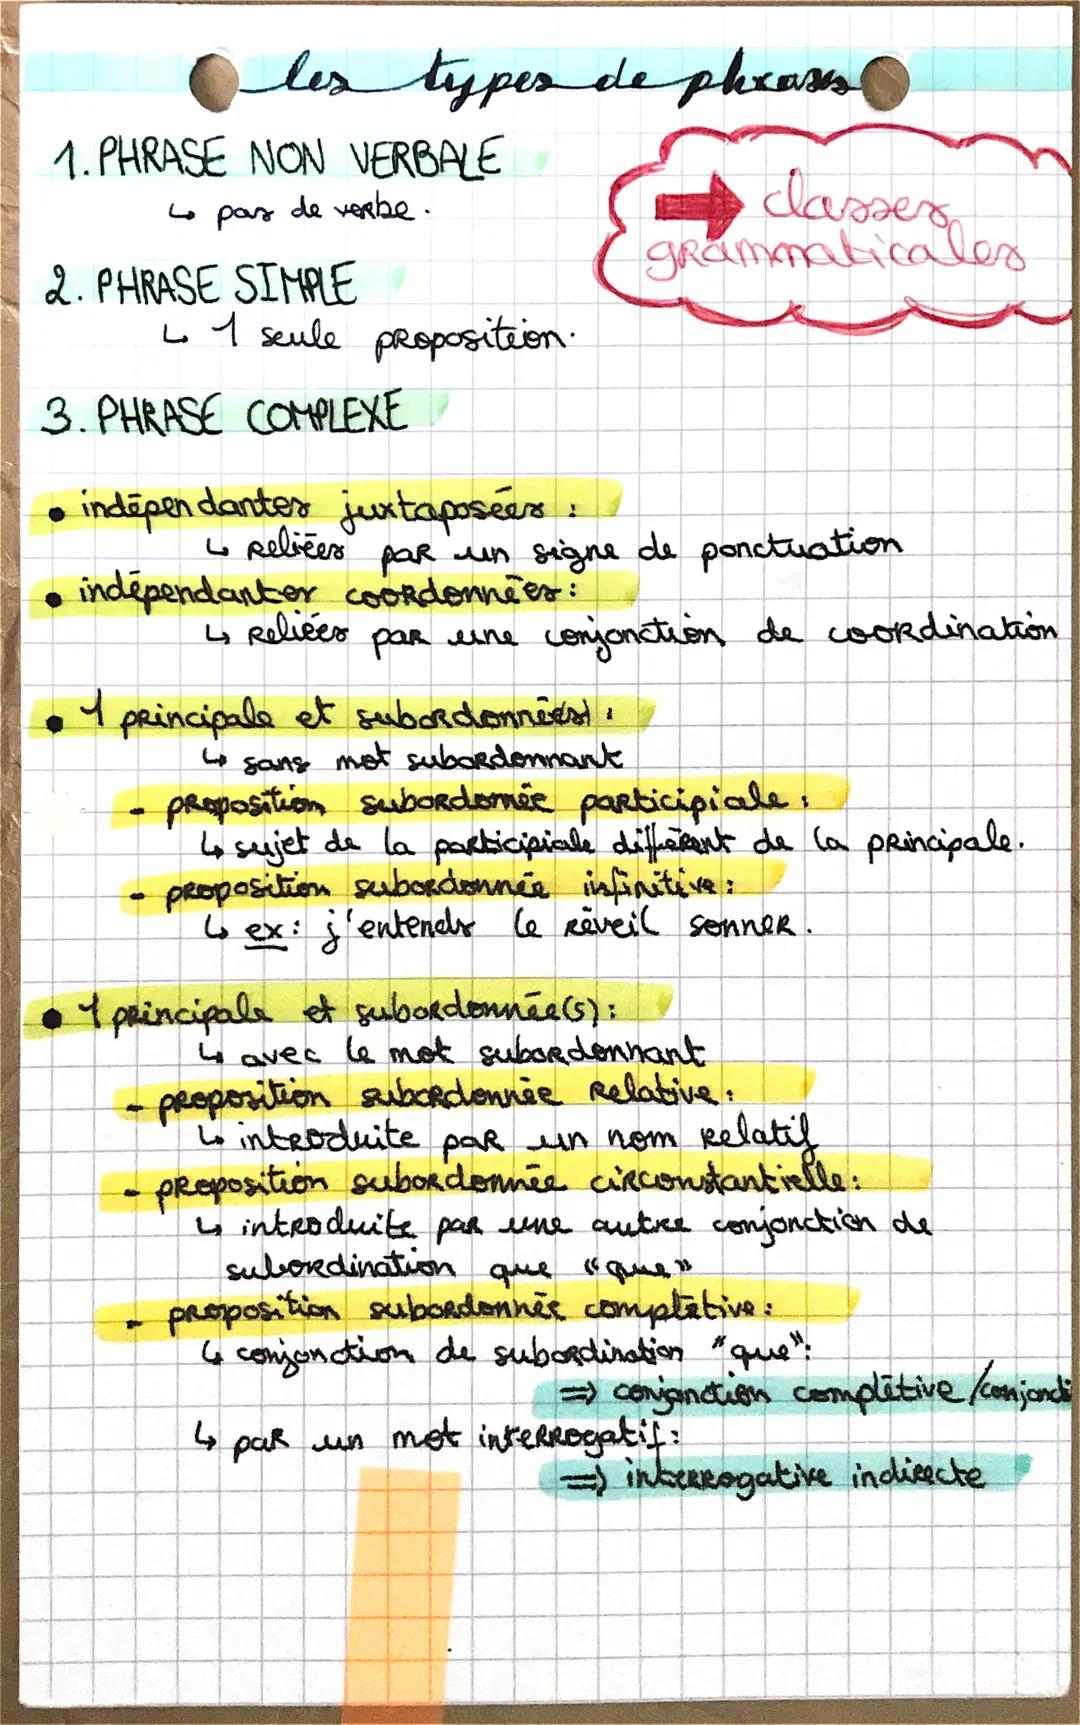 les types de phrases
1. PHRASE NON VERBALE
↳ pas de verbe.
➡ classes
grammaticales
2. PHRASE SIMPLE
↳ 1 seule proposition.
3. PHRASE COMPLEXE
• indépendantes juxtaposées :
↳ reliées par un signe de ponctuation
• indépendantes coordonnées :
↳ reliées par une conjonction de coordination
• 1 principale et subordonnée(s) :
↳ sans mot subordonnant
- proposition subordonnée participiale :
↳ sujet de la participiale différent de la principale.
- proposition subordonnée infinitive :
↳ ex : j'entends le réveil sonner.
• 1 principale et subordonnée(s) :
↳ avec le mot subordonnant
- proposition subordonnée relative :
↳ introduite par un nom relatif
- proposition subordonnée circonstantielle :
↳ introduite par une autre conjonction de
subordination que "que"
- proposition subordonnée complétive :
↳ conjonction de subordination "que" :
=> conjonction complétive /conjoncti
↳ par un mot interrogatif :
=> interrogative indirecte